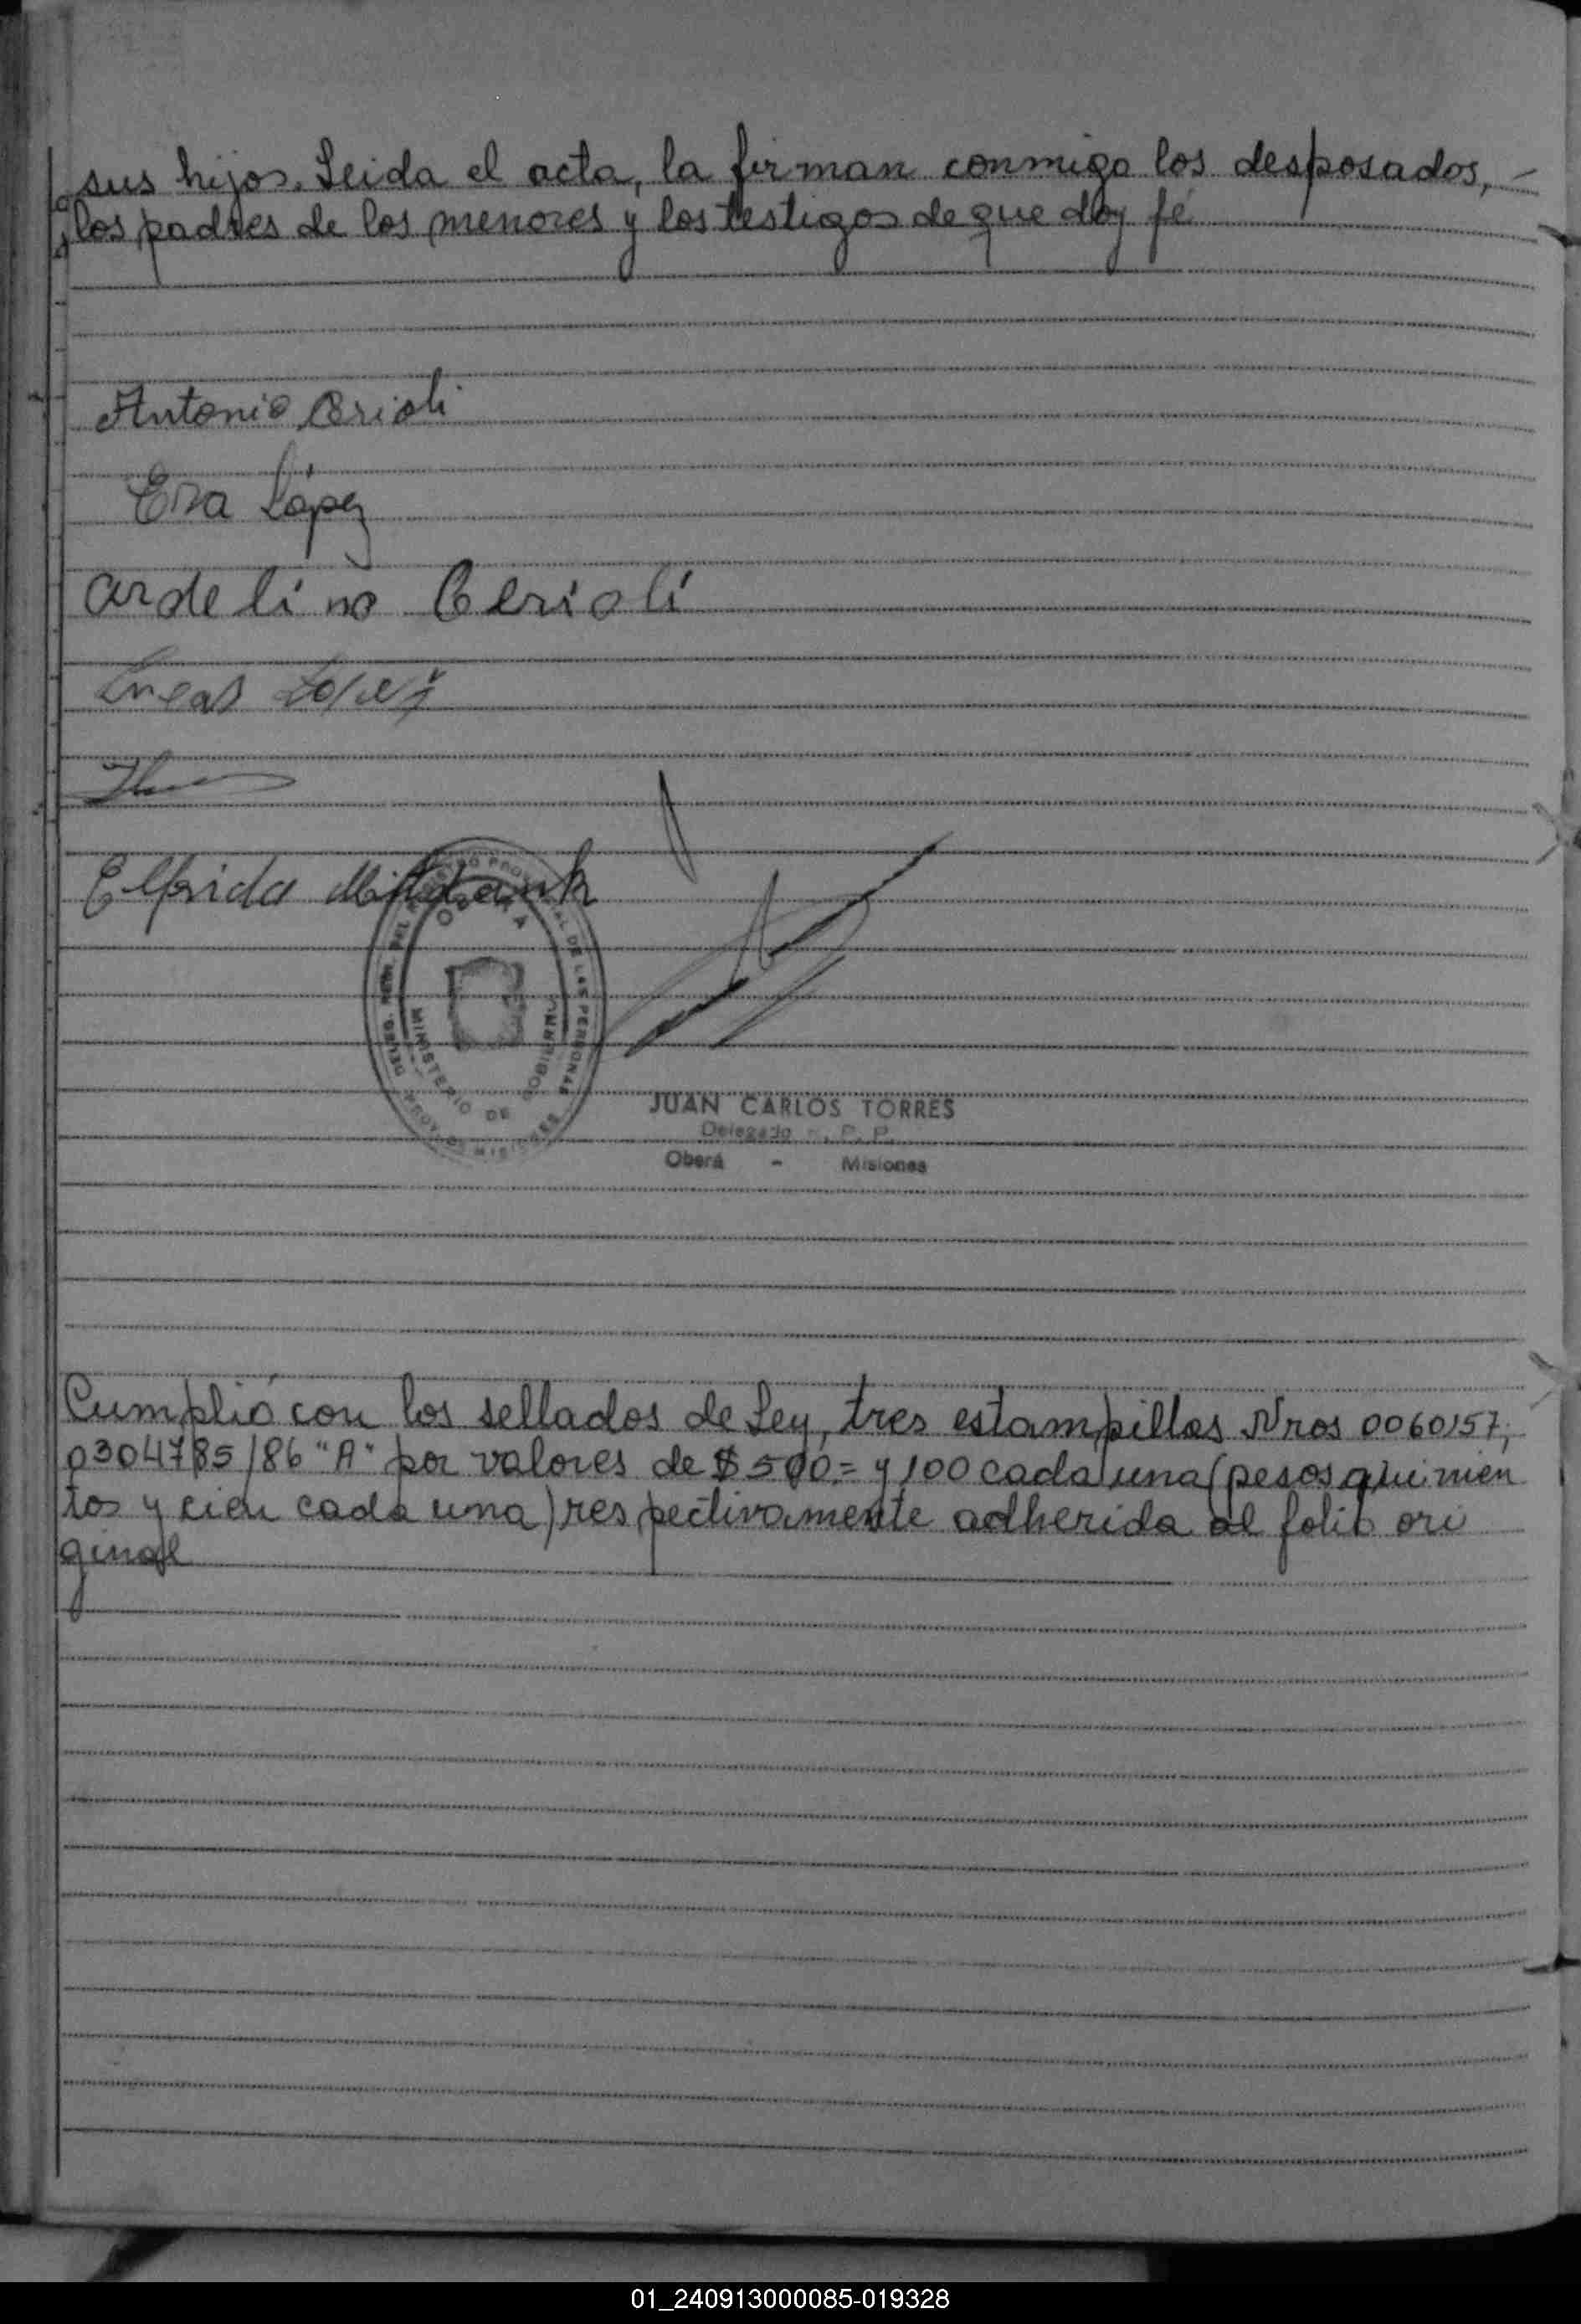 sus hijos. Leida el acta, la firman conmigo los desposados, -
los padres de los menores y los testigos de que doy fé
Antonio
Eva López
Ardelino Cerioli
Lucas Lopez
Elfrida
OBERA
MINISTERIO DE GOBIERNO
JUAN CARLOS TORRES
Delegado R. P. P.
Oberá - Misiones
Cumplió con los sellados de Ley, tres estampillas Nros 0060157,
0304785/86 "A" por valores de $ 500.= y 100 cada una (pesos quinien
tos y cien cada una) respectivamente adherida al folio ori
ginal
01_240913000085-019328